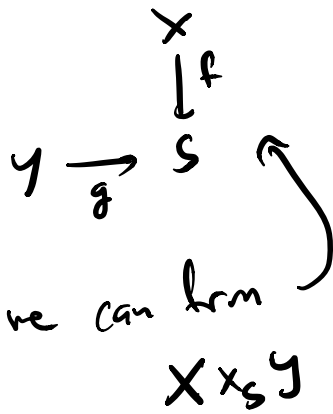 X
↓ f
Y → S
g
we can form
X ×_S Y